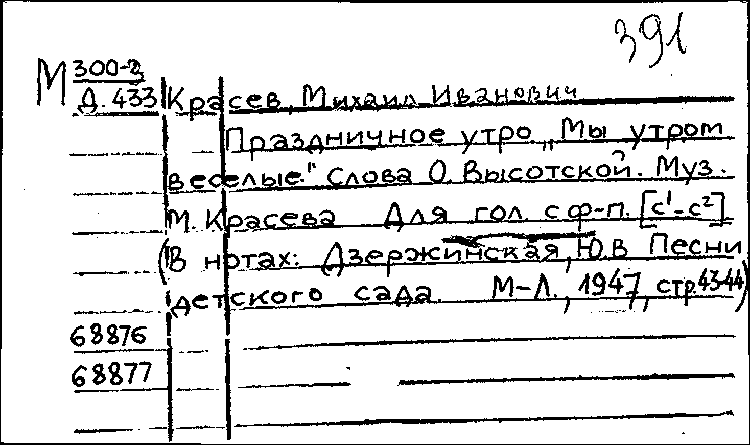 391
М 300-2
Д.433 Красев, Михаил Иванович
Праздничное утро „Мы утром
веселые." Слова О. Высотской. Муз.
М. Красева Для гол. с ф-п. [c¹-c²]
(В нотах: Дзержинская, Ю.В Песни
детского сада. М-Л., 1947, стр.43-44)
68876
68877